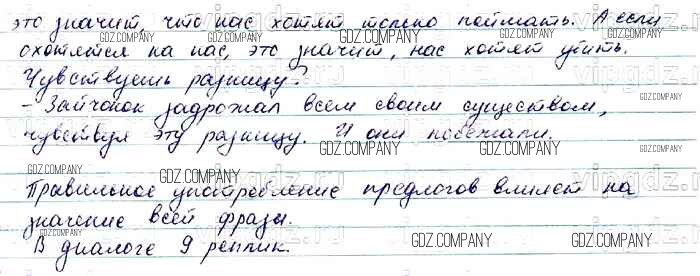 это значит, что нас хотят только поймать. А если
охотятся на нас, это значит, нас хотят убить.
Чувствуешь разницу?
- Зайчонок задрожал всем своим существом,
чувствуя эту разницу. И они побежали.
Правильное употребление предлогов влияет на
значение всей фразы.
В диалоге 9 реплик.
GDZ.COMPANY
GDZ.COMPANY
GDZ.COMPANY
GDZ.COMPANY
GDZ.COMPANY
GDZ.COMPANY
GDZ.COMPANY
GDZ.COMPANY
GDZ.COMPANY
GDZ.COMPANY
GDZ.COMPANY
GDZ.COMPANY
GDZ.COMPANY